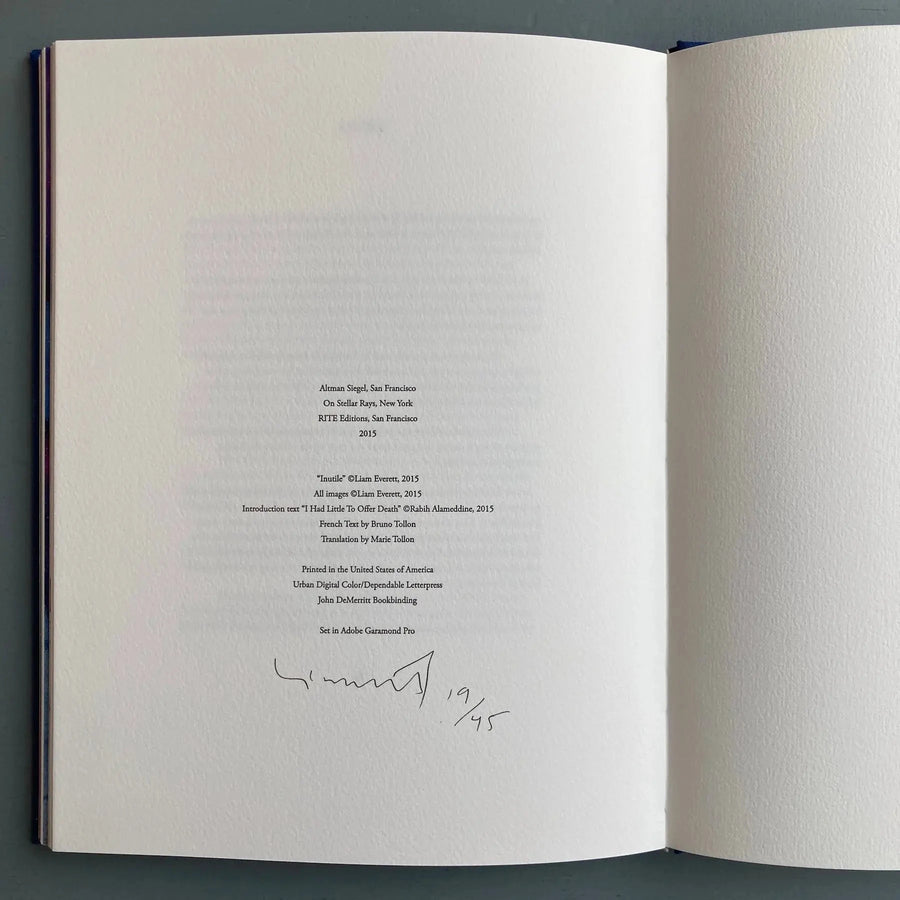 Altman Siegel, San Francisco
On Stellar Rays, New York
RITE Editions, San Francisco
2015
“Inutile” ©Liam Everett, 2015
All images ©Liam Everett, 2015
Introduction text “I Had Little To Offer Death” ©Rabih Alameddine, 2015
French Text by Bruno Tollon
Translation by Marie Tollon
Printed in the United States of America
Urban Digital Color/Dependable Letterpress
John DeMerritt Bookbinding
Set in Adobe Garamond Pro
19/45